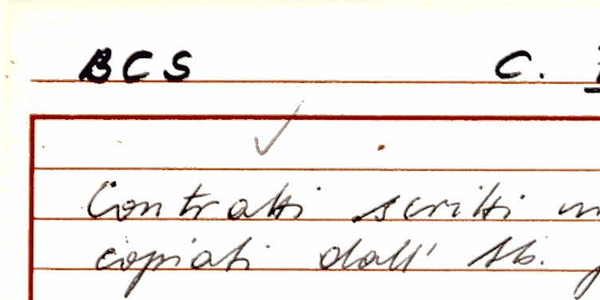 BCS C.
Contratti scritti
copiati dall' Ab.